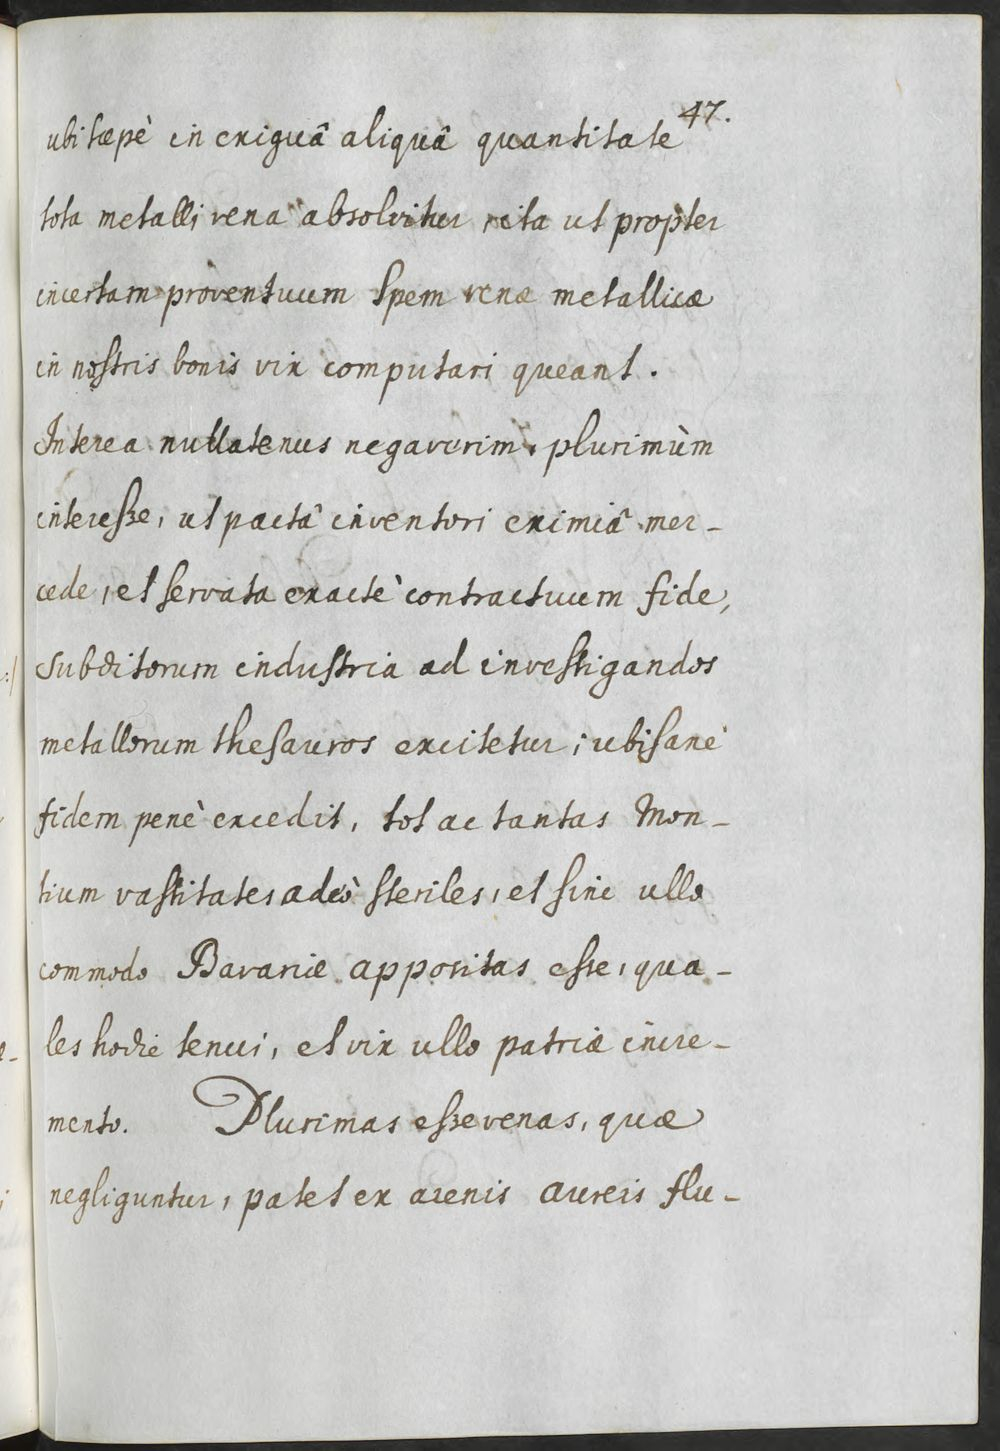 47.
ubi sæpè in exiguâ aliquâ quantitate
tota metalli vena absolvitur, ita ut propter
incertam proventuum spem venæ metallicæ
in nostris bonis vix computari queant.
Interea nullatenus negaverim, plurimùm
interesse, ut pactâ inventori eximiâ mer-
cede, et servata exactè contractuum fide,
subditorum industria ad investigandos
metallorum thesauros excitetur; ubi sanè
fidem penè excedit, tot ac tantas Mon-
tium vastitates adeò steriles, et sine ullo
commodo Bavariæ appositas esse, qua-
les hodie tenui, et vix ullo patriæ incre-
mento. Plurimas esse venas, quæ
negliguntur, patet ex arenis aureis flu-